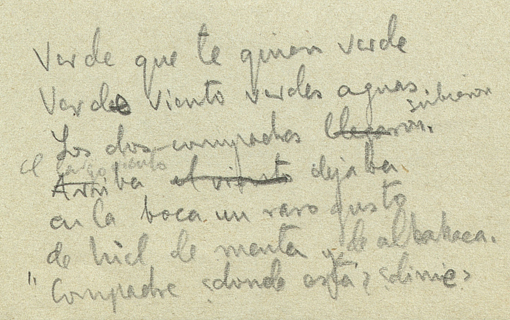 Verde que te quiero verde
Verde viento verdes aguas
Los dos compadres llegaron. subieron
el largo viento
Arriba el viento dejaba.
en la boca un raro gusto
de hiel de menta y de albahaca.
"Compadre ¿donde está? ¿dime?